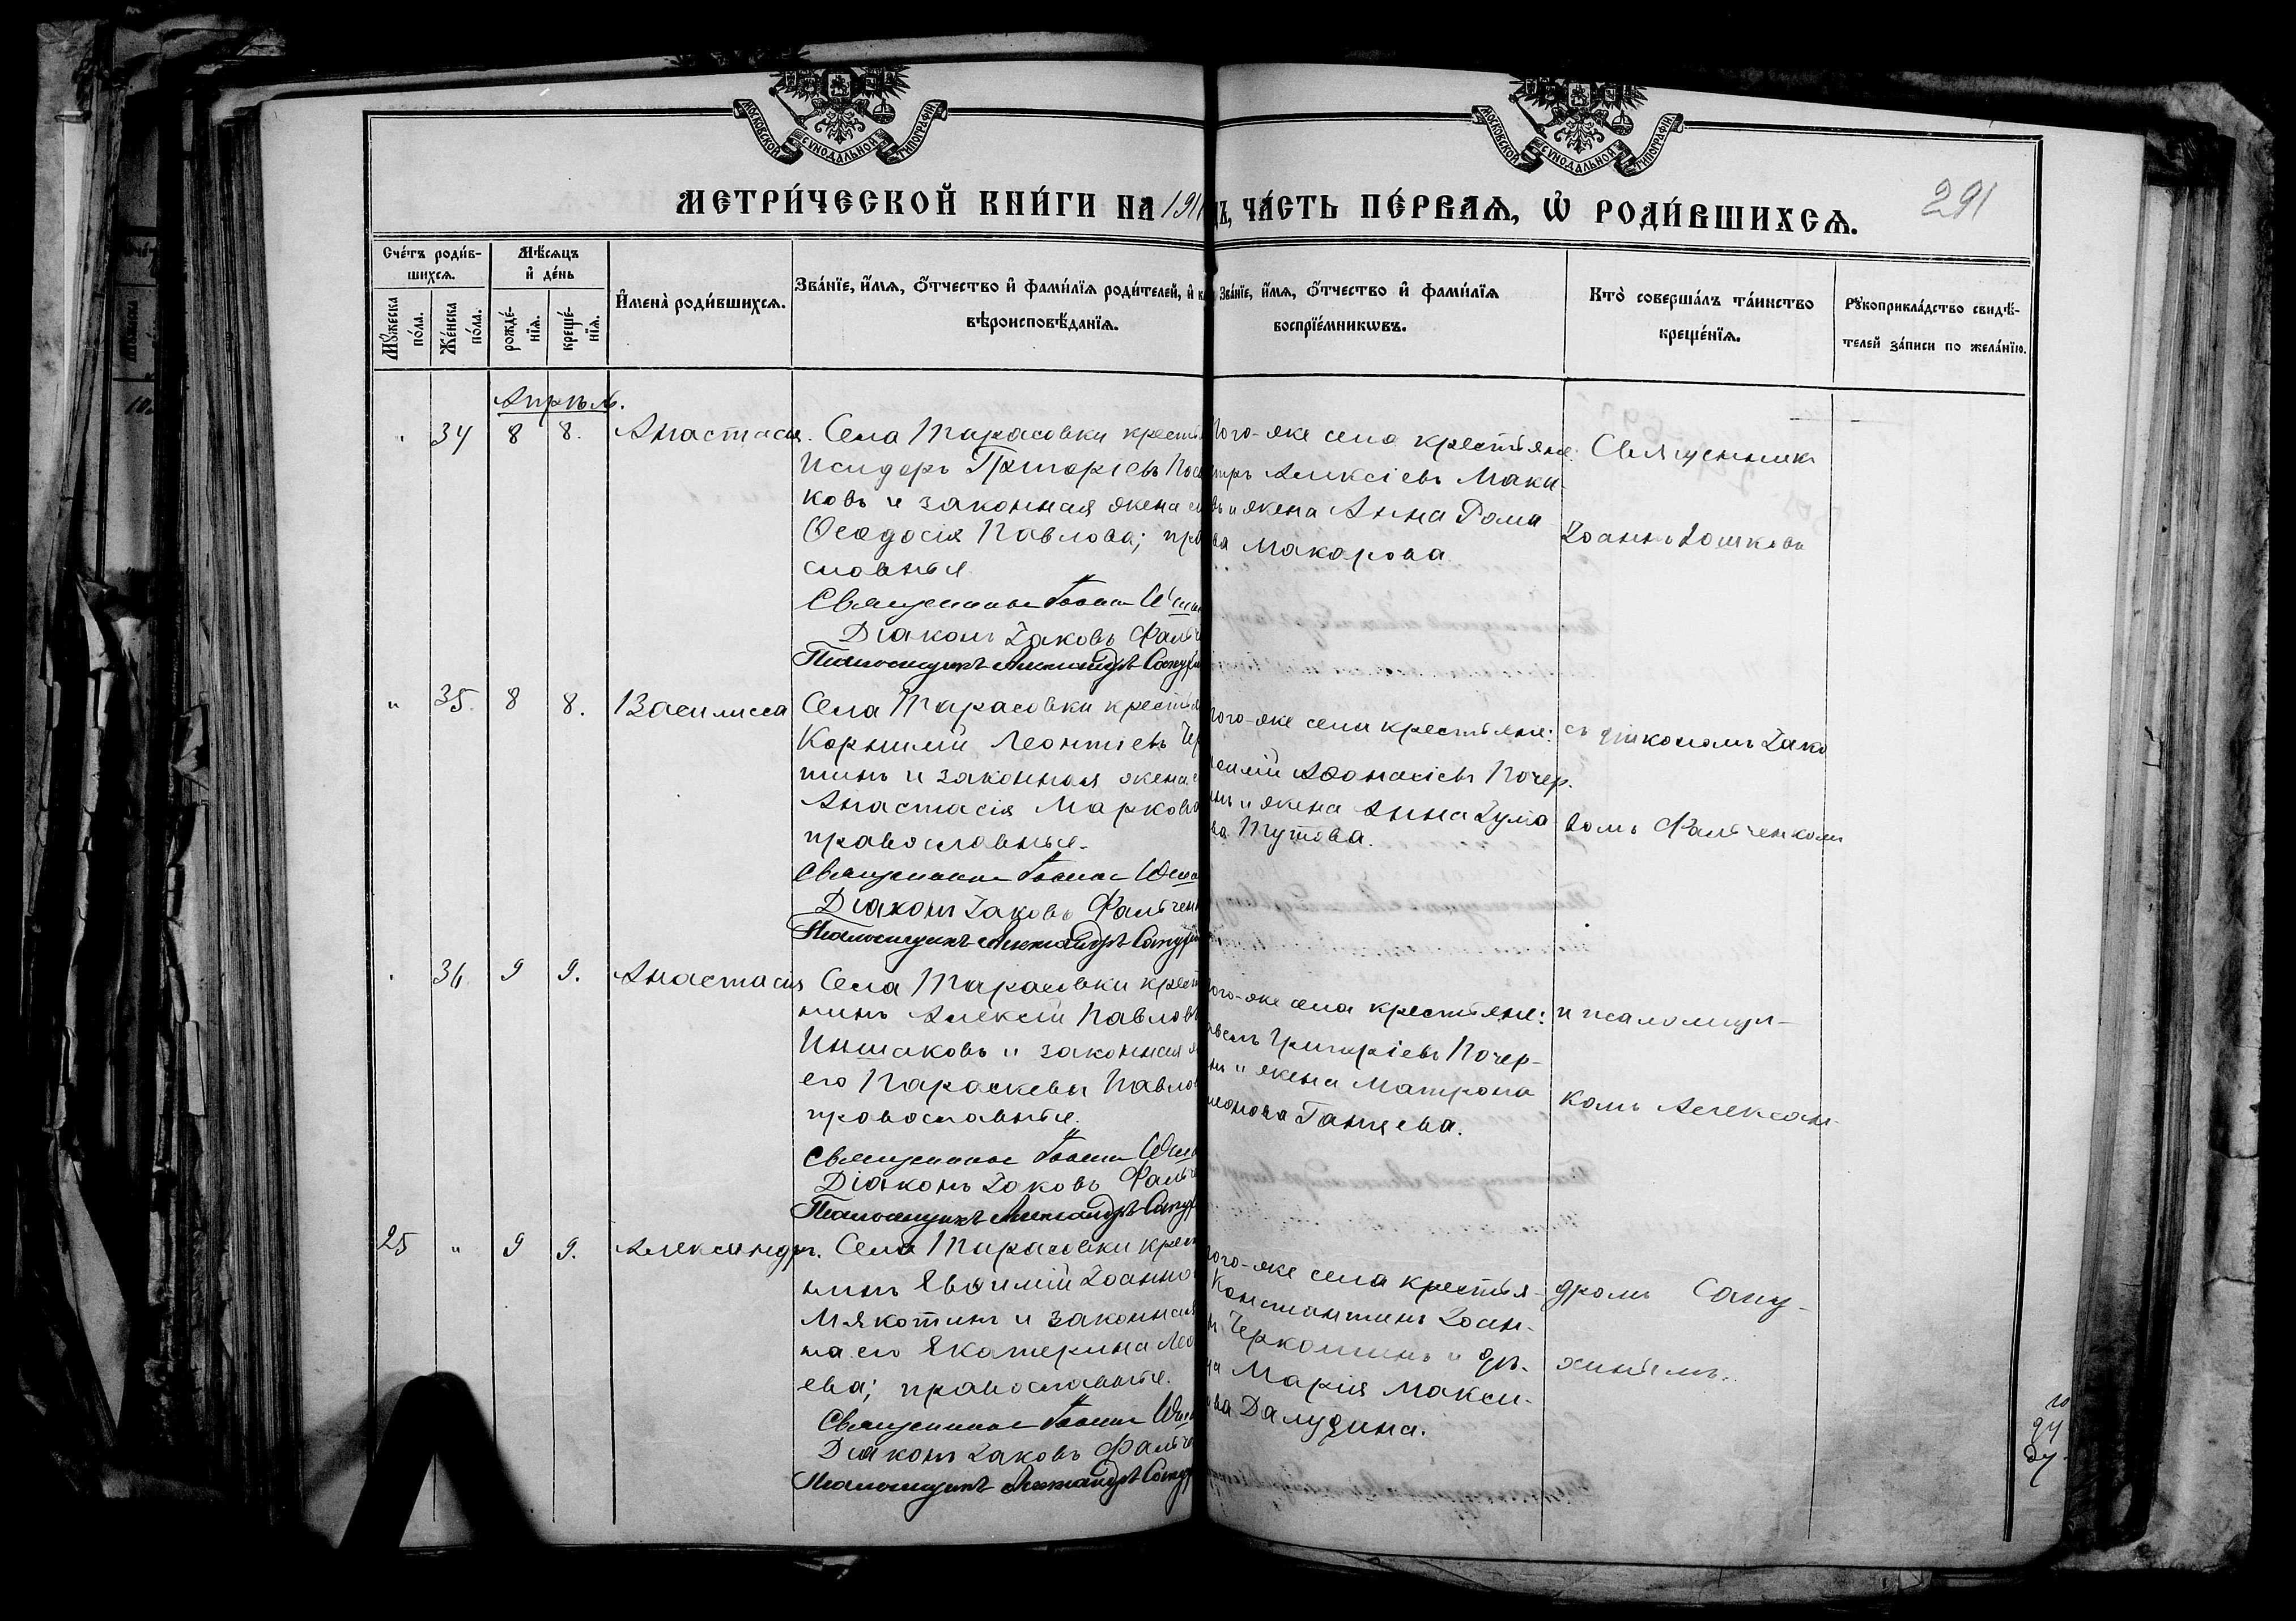 МОСКОВСКОЙ СѴНОДАЛЬНОЙ ТИПОГРАФІИ
МОСКОВСКОЙ СѴНОДАЛЬНОЙ ТИПОГРАФІИ
МЕТРИ́ЧЕСКОЙ КНИ́ГИ НА 1911
ЧА́СТЬ ПЕ́РВАѦ, Ѡ҆ РОДИ́ВШИХСѦ.
291
Сче́тъ роди́в-
шихсѧ.
Мꙋ́жеска по́ла.
Же́нска по́ла.
Мѣ́сѧцъ
и҆ де́нь
рожде́-
нїѧ.
креще́-
нїѧ.
И҆мена̀ роди́вшихсѧ.
Зва́нїе, и҆́мѧ, ѻ҆́тчество и҆ фами́лїѧ роди́телей, и҆
вѣроисповѣ́данїѧ.
Зва́нїе, и҆́мѧ, ѻ҆́тчество и҆ фами́лїѧ
воспрїе́мникѡвъ.
Кто̀ соверша́лъ та́инство
креще́нїѧ.
Рꙋкоприкла́дство свидѣ́-
телей за́писи по жела́нїю.
Апрѣль.
" 34 8 8. Анастасія.
Села Тарасовки кресть
Исидоръ Григоріевъ Пос
ковъ и законная жена е
Ѳеодосія Павлова; пра
славные
Священникъ Іоаннъ
Діаконъ Іаковъ Фальч
Псаломщикъ Александръ Сапух
того-же села крестьяне:
тръ Алексіевъ Мака-
въ и жена Анна Рома
ва Макарова
Священник
Іоаннъ
" 35. 8 8. Василисса
Села Тарасовки крестья
Корнилій Леонтіевъ Чер
тинъ и законная жена е
Анастасія Маркова
православные.
Священникъ Іоаннъ
Діаконъ Іаковъ Фальчен
Псаломщикъ Александръ Сапухи
того-же села крестьяне:
Аѳанасіевъ Почер-
инъ и жена Анна
ва Тутова.
съ діакономъ Іако
вомъ Фальченкомъ
" 36 9 9. Анастасія
Села Тарасовки крест
нинъ Алексій Павловъ
Иншаковъ и законная ж
его Параскева Павло
православные.
Священникъ Іоаннъ
Діаконъ Іаковъ Фальче
Псаломщикъ Александръ Сапух
того-же села крестьяне:
авелъ Григоріевъ Почер-
нъ и жена Матрона
меонова Ганцева.
и псаломщи-
комъ Алексан-
25 " 9 9. Александръ.
Села Тарасовки крест
нинъ Евѳимій Іоанно
Мякотинъ и законная
на его Екатерина Лео
ева; православные.
Священникъ Іоаннъ
Діаконъ Іаковъ Фальче
Псаломщикъ Александръ Сапух
того-же села крестья-
Константинъ Іоан-
Черкашинъ и дѣ-
ца Марія Макси-
ова Далудина.
дромъ Сапу-
хинымъ.